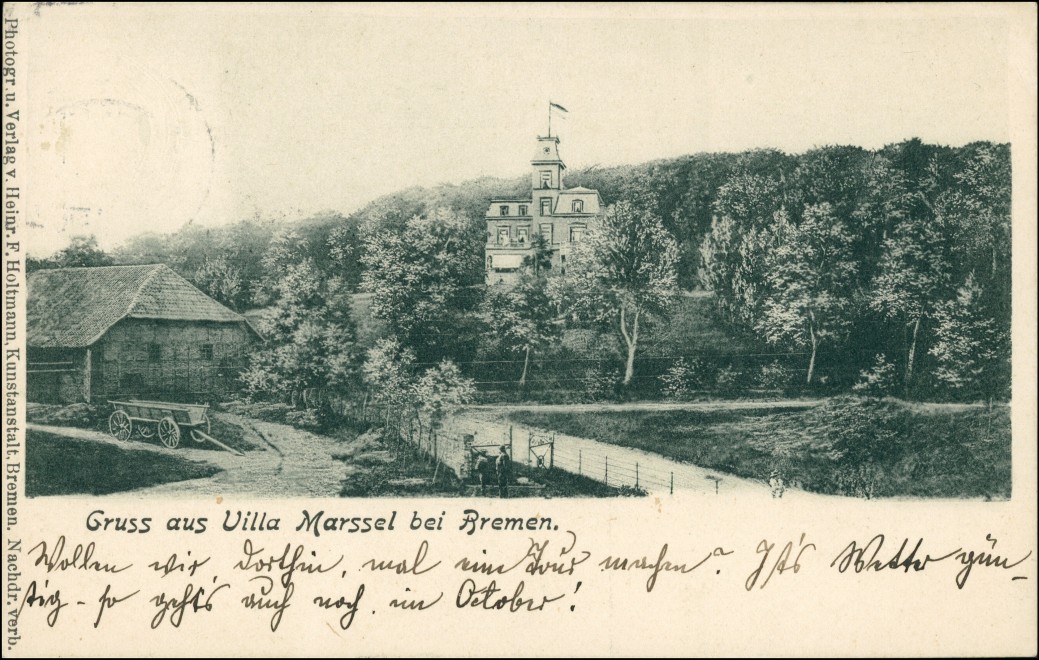 Photogr. u. Verlag v. Heinr. F. Holtmann, Kunstanstalt. Bremen. Nachdr. verb.
Gruss aus Villa Marssel bei Bremen.
Wollen wir dorthin, mal eine Tour machen? Ist's Wetter gün-
stig - so geht's auch noch im October!